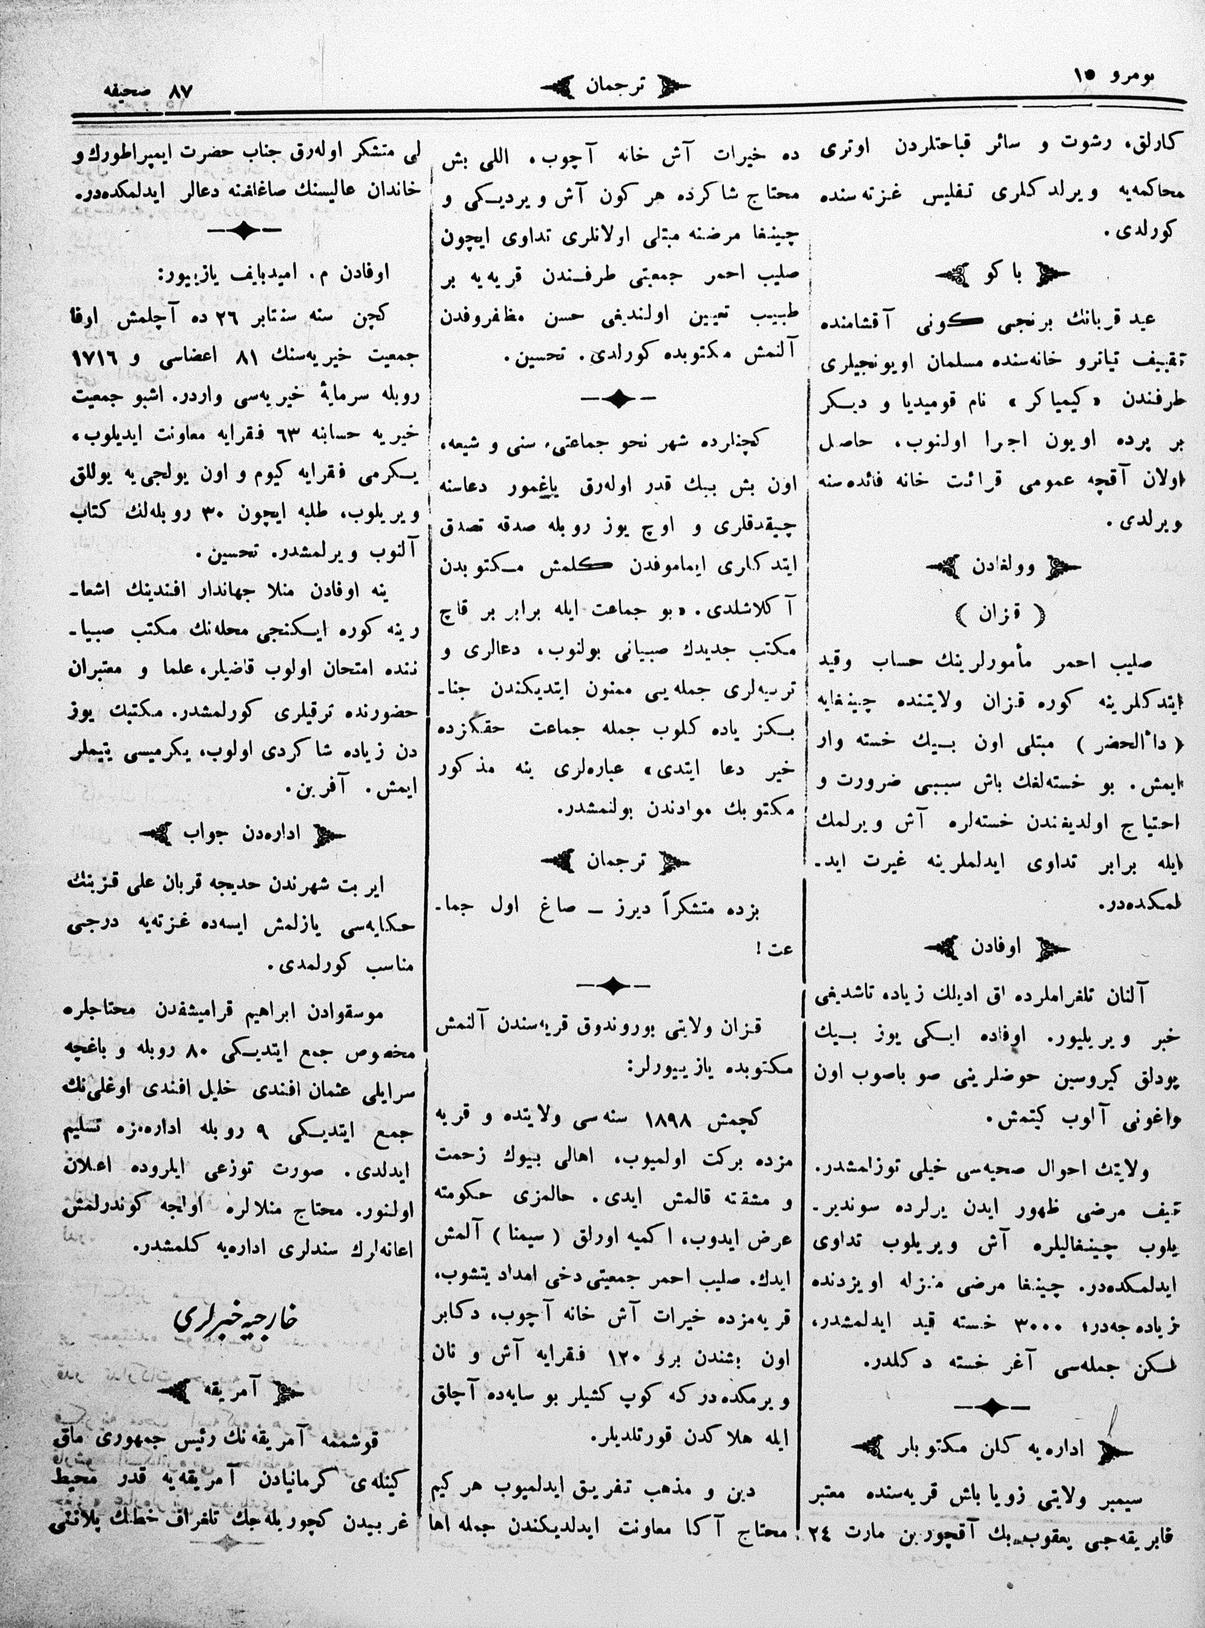 نومرو ١٥
ترجمان
٨٧ صحیفه
كارلق، رشوت و سائر قباحتلردن اوتری
محاكمه‌یه ویرلدكلری تفلیس غزته‌سنده
كورلدی.
باكو
عید قربانك برنجی كونی آقشامنده
تقییف تیاترو خانه‌سنده مسلمان اویونجیلری
طرفندن «كیمیاكر» نام قومیدیا و دیكر
بر پرده اویون اجرا اولنوب، حاصل
اولان آقچه عمومی قرائت خانه فائده‌سنه
ویرلدی.
وولغادن
(قزان)
صلیب احمر مأمورلرینك حساب وقید
ایتدكلرینه كوره قزان ولایتنده چینغایه
(داﺀالحضر) مبتلی اون بیك خسته وار
ایمش. بو خسته‌لفك باش سببی ضرورت و
احتیاج اولدیغندن خسته‌لره آش ویرلمك
ایله برابر تداوی ایدلملرینه غیرت اید-
لمكده‌در.
اوفادن
آلنان تلغراملرده اق ادیلك زیاده تاشدیغی
خبر ویریلیور. اوفاده ایكی یوز بیك
پودلق كیروسین حوضلرینی صو باصوب اون
واغونی آلوب كیتمش.
ولایتك احوال صحیه‌سی خیلی توزلمشدر.
تیف مرضی ظهور ایدن یرلرده سوندیر-
یلوب چینغالیلره آش ویریلوب تداوی
ایدلمكده‌در. چینغا مرضی منزله اویزدنده
زیاده‌جه‌در؛ ٣٠٠٠ خسته قید ایدلمشدر،
لكن جمله‌سی آغر خسته دكلدر.
اداره‌یه كلن مكتوبلر
سیمبر ولایتی زویاباش قریه‌سنده معتبر
فابریقه‌جی یعقوب‌بك آقچورین مارت ٢٤
ده خیرات آش خانه آچوب، اللی بش
محتاج شاكرده هر كون آش ویردیكی و
چینغا مرضنه مبتلی اولانلری تداوی ایچون
صلیب احمر جمعیتی طرفندن قریه‌یه بر
طبیب تعیین اولندیغی حسن مظفروفدن
آلنمش مكتوبده كورلدی. تحسین.
كچنلرده شهر نحو جماعتی، سنی و شیعه،
اون بش بیك قدر اوله‌رق یاغمور دعاسنه
چیقدقلری و اوچ یوز روبله صدقه تصدق
ایتدكلری ایماموفدن كلمش مكتوبدن
آكلاشلدی. «بو جماعت ایله برابر بر قاچ
مكتب جدیدك صبیانی بولنوب، دعالری و
تربیه‌لری جمله‌یی ممنون ایتدیكندن جنا-
بكز یاده كلوب جمله جماعت حقكزده
خیر دعا ایتدی» عباره‌لری ینه مذكور
مكتوبك موادندن بولنمشدر.
ترجمان
بزده متشكراً دیرز — صاغ اول جما-
عت!
قزان ولایتی بوروندوق قریه‌سندن آلنمش
مكتوبده یازییورلر:
كچمش ١٨٩٨ سنه‌سی ولایتده و قریه
مزده بركت اولمیوب، اهالی بیوك زحمت
و مشقته قالمش ایدی. حالمزی حكومته
عرض ایدوب، اكمیه اورلق (سیمنا) آلمش
ایدك. صلیب احمر جمعیتی دخی امداد یتشوب،
قریه‌مزده خیرات آش خانه آچوب، دكابر
اون بشندن برو ١٢٠ فقرایه آش و نان
ویرمكده‌در كه كوپ كشیلر بو سایه‌ده آچلق
ایله هلاكدن قورتلدیلر.
دین و مذهب تفریق ایدلمیوب هر كیم
محتاج آكا معاونت ایدلدیكندن جمله اها
لی متشكر اوله‌رق جناب حضرت ایمپراطورك و
خاندان عالیسنك صاغلغنه دعالر ایدلمكده‌در.
اوفادن م. امیدبایف یازییور:
كچن سنه سنتابر ٢٦ ده آچلمش اوفا
جمعیت خیریه‌سنك ٨١ اعضاسی و ١٧١٦
روبله سرمایهٔ خیریه‌سی واردر. اشبو جمعیت
خیریه حسابنه ٦٣ فقرایه معاونت ایدیلوب،
یكرمی فقرایه كیوم و اون یولجی‌یه یوللق
ویریلوب، طلبه ایچون ٣٠ روبله‌لك كتاب
آلنوب ویرلمشدر. تحسین.
ینه اوفادن منلا جهاندار افندینك اشعا-
رینه كوره ایكنجی محله‌نك مكتب صبیا-
ننده امتحان اولوب قاضیلر، علما و معتبران
حضورنده ترقیلری كورلمشدر. مكتبك یوز
دن زیاده شاكردی اولوب، یكرمیسی یتیملر
ایمش. آفرین.
اداره‌دن جواب
ایربت شهرندن حدیجه قربان علی قزینك
حكایه‌سی یازلمش ایسه‌ده غزته‌یه درجی
مناسب كورلمدی.
موسقوادن ابراهیم قرامیشفدن محتاجلره
مخصوص جمع ایتدیكی ٨٠ روبله و باغچه
سرایلی عثمان افندی خلیل افندی اوغلی‌نك
جمع ایتدیكی ٩ روبله اداره‌مزه تسلیم
ایدلدی. صورت توزعی ایلروده اعلان
اولنور. محتاج منلالره اولجه كوندرلمش
اعانه‌لرك سندلری اداره‌یه كلمشدر.
خارجیه خبرلری
آمریقه
قوشمه آمریقه‌نك رئیس جمهوری ماق
كینله‌ی كرمانیادن آمریقه‌یه قدر محیط
غربیدن كچوریله‌جك تلغراف خطك پلاننی